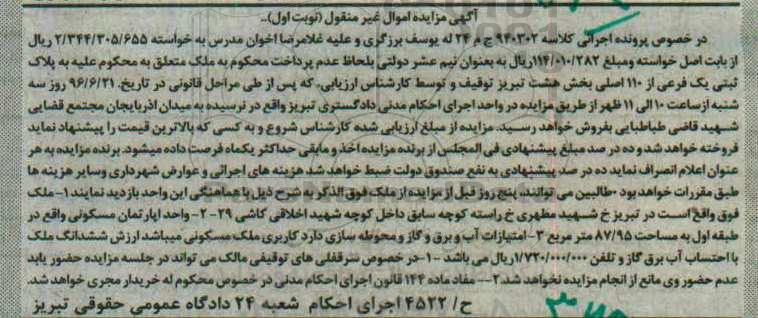 آگهی مزایده اموال غیر منقول (نوبت اول)..
در خصوص پرونده اجرائی کلاسه ۹۴۰۳۰۲ ج م ۲۴ له یوسف برزگری و علیه غلامرضا اخوان مدرس به خواسته ۲/۳۴۴/۳۰۵/۶۵۵ ریال
از بابت اصل خواسته ومبلغ ۱۱۴/۰۱۰/۲۸۲ریال به بعنوان نیم عشر دولتی بلحاظ عدم پرداخت محکوم به ملک متعلق به محکوم علیه به پلاک
ثبتی یک فرعی از ۱۱۰ اصلی بخش هشت تبریز توقیف و توسط کارشناس ارزیابی، که پس از طی مراحل قانونی در تاریخ، ۹۶/۶/۲۱ روز سه
شنبه ازساعت ۱۰ الی ۱۱ ظهر از طریق مزایده در واحد اجرای احکام مدنی دادگستری تبریز واقع در نرسیده به میدان اذربایجان مجتمع قضایی
شهید قاضی طباطبایی بفروش خواهد رسید. مزایده از مبلغ ارزیابی شده کارشناس شروع و به کسی که بالاترین قیمت را پیشنهاد نماید
فروخته خواهد شد و ده در صد مبلغ پیشنهادی فی المجلس از برنده مزایده اخذ و مابقی حداکثر یکماه فرصت داده میشود. برنده مزایده به هر
عنوان اعلام انصراف نماید ده در صد پیشنهادی به نفع صندوق دولت ضبط خواهد شد هزینه های اجرائی و عوارض شهرداری وسایر هزینه ها
طبق مقررات خواهد بود •طالبین می توانند، پنج روز قبل از مزایده از ملک فوق الذکر به شرح ذیل با هماهنگی این واحد بازدید نمایند ۱- ملک
فوق واقع است در تبریز خ شهید مطهری خ راسته کوچه سابق داخل کوچه شهید اخلاقی کاشی ۲۹ -۲- واحد اپارتمان مسکونی واقع در
طبقه اول به مساحت ۸۷/۹۵ متر مربع ۳- امتیازات آب و برق و گاز و محوطه سازی دارد کاربری ملک مسکونی میباشد ارزش ششدانگ ملک
با احتساب آب برق گاز و تلفن ۱/۷۲۰/۰۰۰/۰۰۰ریال می باشد -۱-در خصوص سرقفلی های توقیفی مالک می تواند در جلسه مزایده حضور یابد
عدم حضور وی مانع از انجام مزایده نخواهد شد ۲-- مفاد ماده ۱۴۴ قانون اجرای احکام مدنی در خصوص محکوم له خریدار مجری خواهد شد.
ح/ ۴۵۲۲ اجرای احکام شعبه ۲۴ دادگاه عمومی حقوقی تبریز